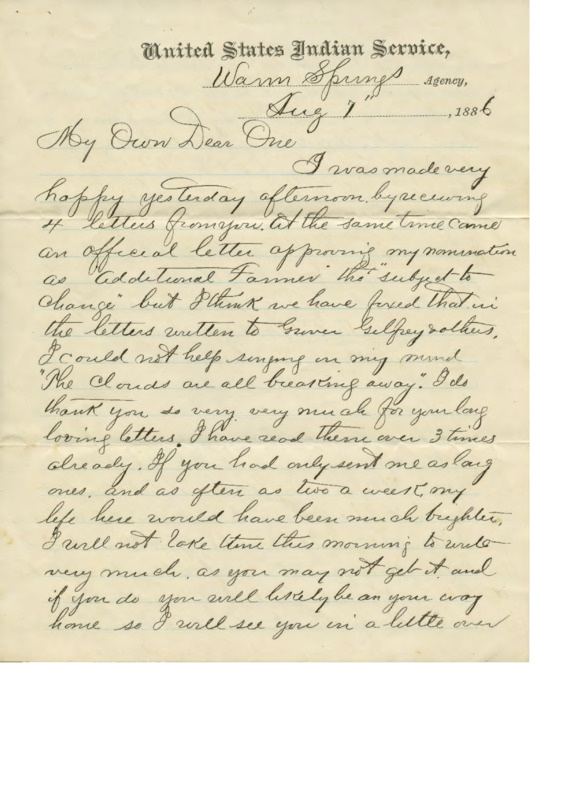 United States Indian Service,
Warm Springs Agency,
Aug 7" , 1886
My Own Dear One
I was made very
happy yesterday afternoon, by receiving
4 letters from you. At the same time came
an official letter approving my nomination
as "Additional Farmer" tho' "subject to
change" but I think we have fixed that in
the letters written to Gelfrey & others.
I could not help singing in my mind
"The Clouds are all breaking away". I do
thank you so very very much for your long
loving letters. I have read them over 3 times
already. If you had only sent me as long
ones, and as often as two a week, my
life here would have been much brighter.
I will not take time this morning to write
very much, as you may not get it and
if you do you will likely be on your way
home so I will see you in a little over